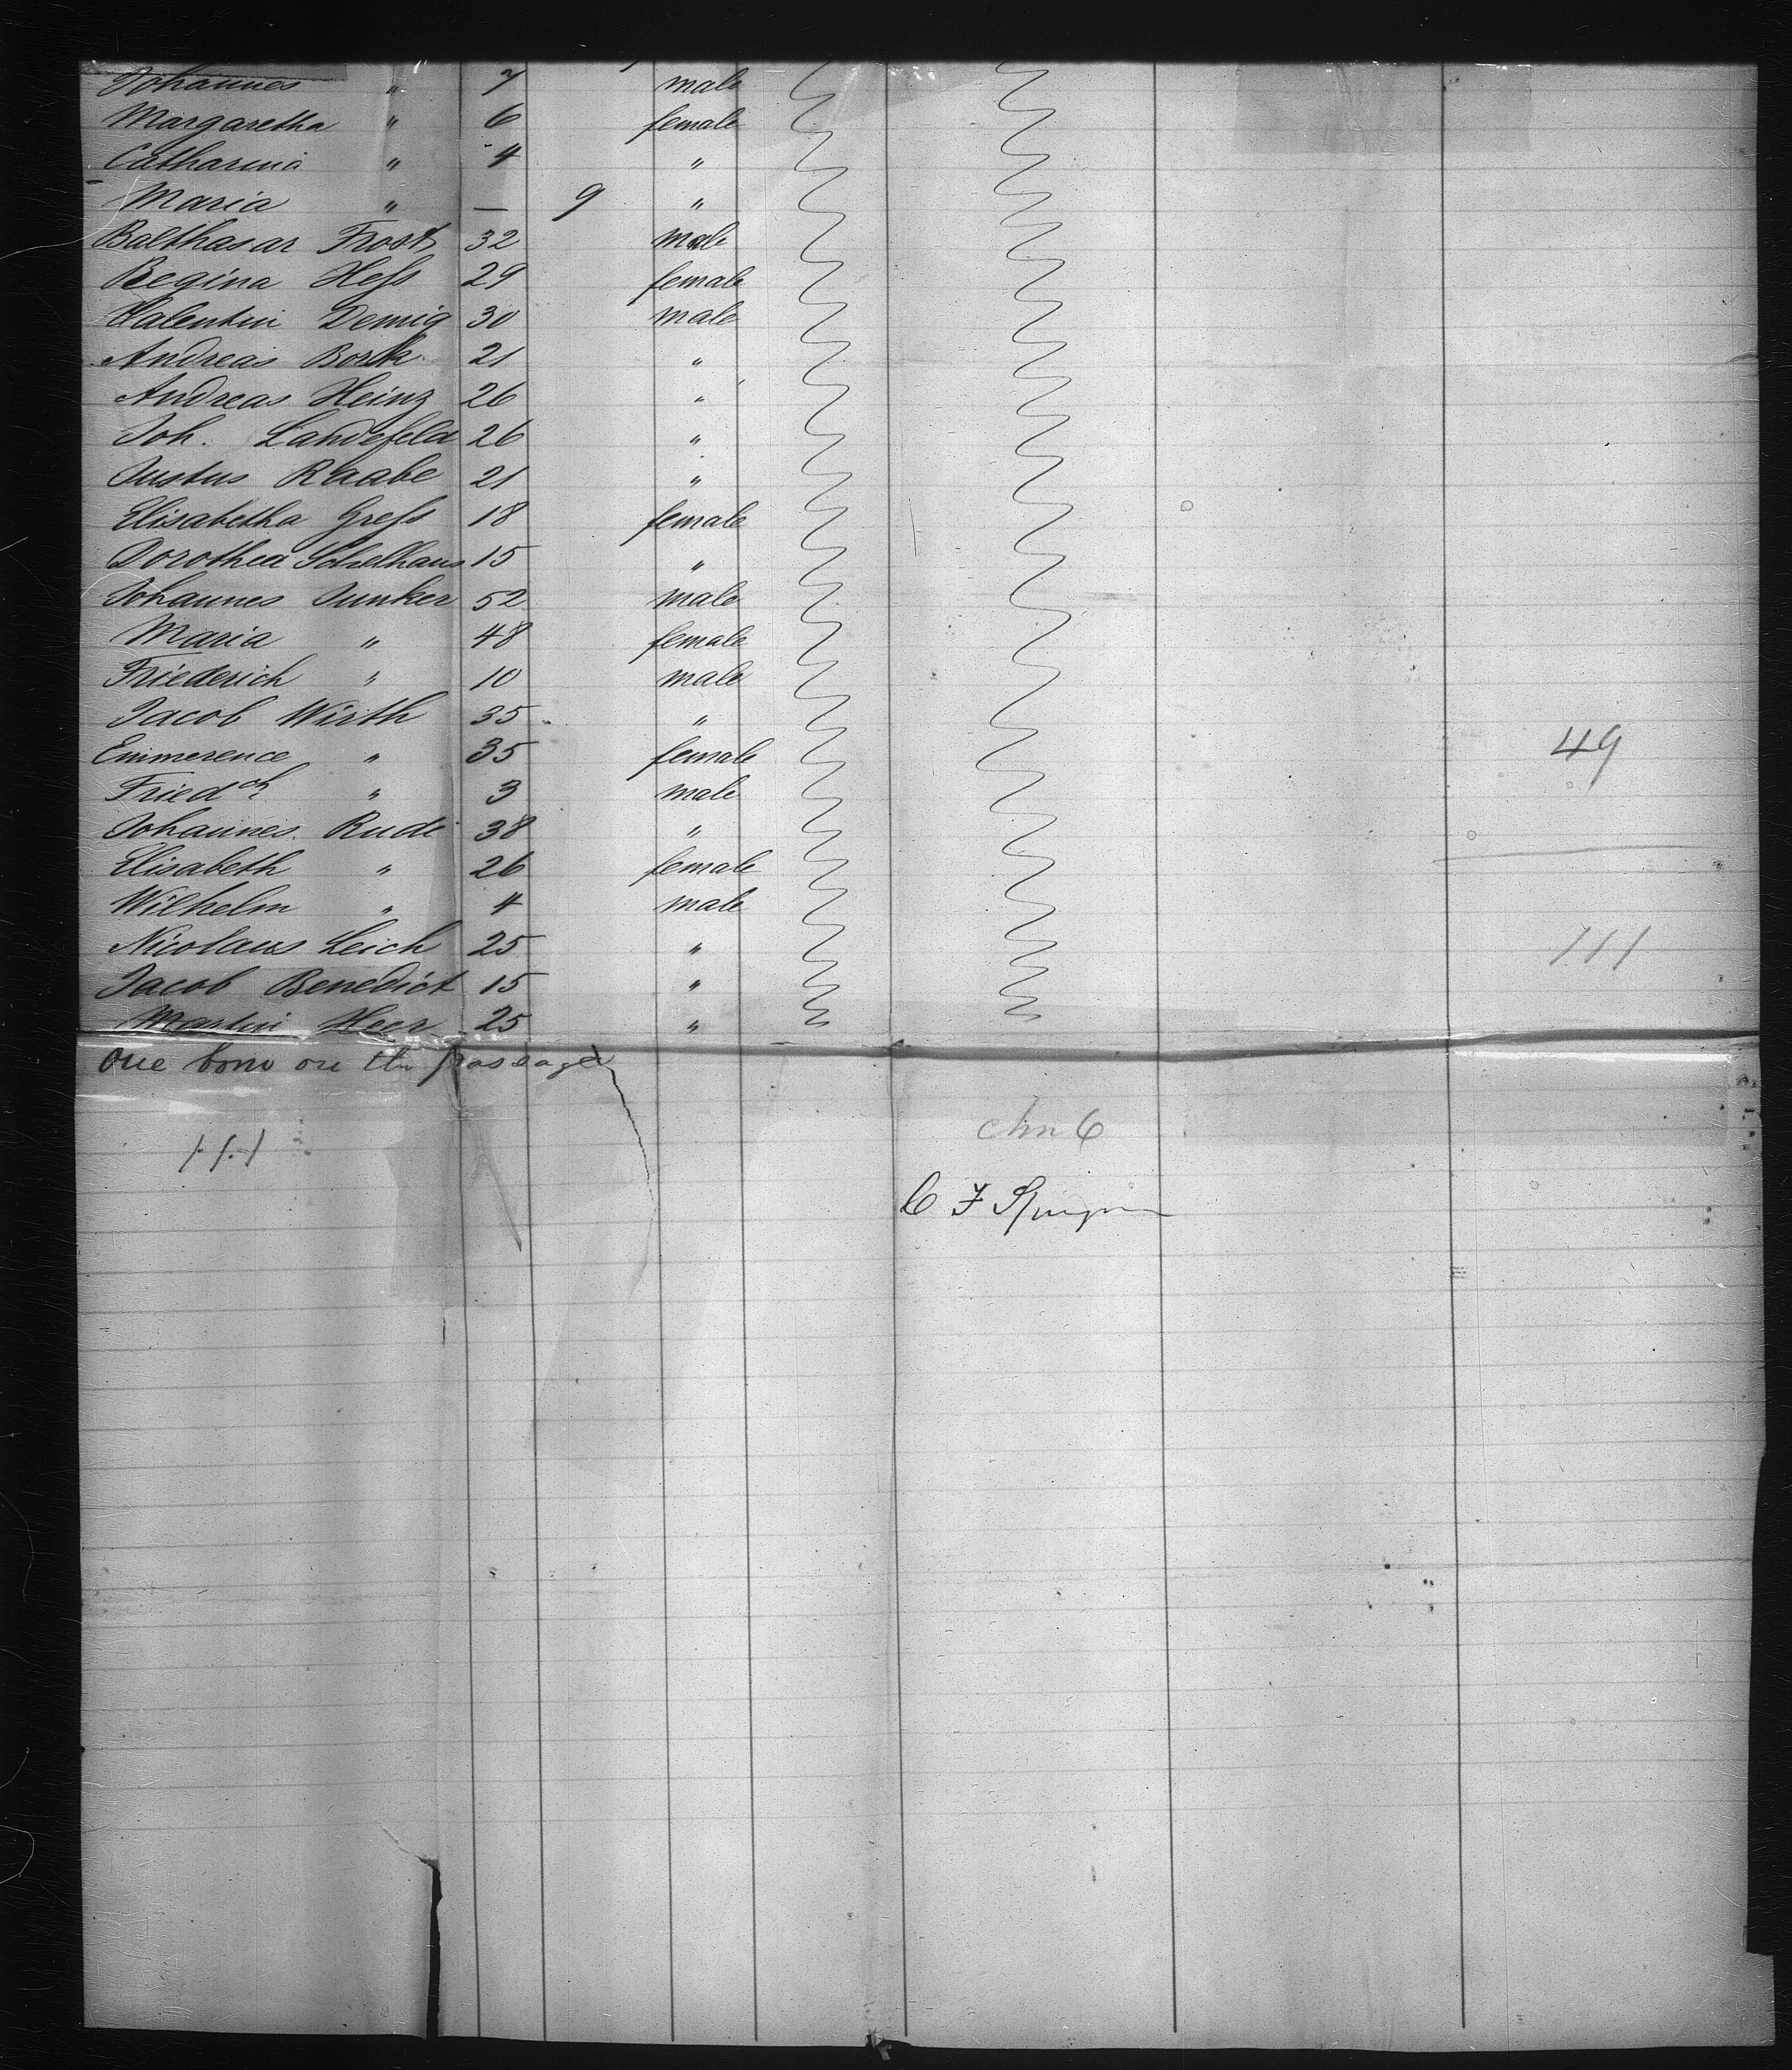 Johannes " 7 male
Margaretha " 6 female
Catharina " 4 "
Maria " — 9 "
Balthasar Frost 32 male
Regina Heſs 29 female
Valentin Demig 30 male
Andreas Bork 21 "
Andreas Heinz 26 "
Joh. Landefeld 26 "
Justus Raabe 21 "
Elisabetha Greſs 18 female
Dorothea Schelhaus 15 "
Johannes Junker 52 male
Maria " 48 female
Friederich " 10 male
Jacob Wirth 35 "
Emmerence " 35 female 49
Friedch " 3 male
Johannes Rude 38 "
Elisabeth " 26 female
Wilhelm " 4 male
Nicolaus Leich 25 " 111
Jacob Benedict 15 "
Martin Heer 25 "
One born on the passage
C F